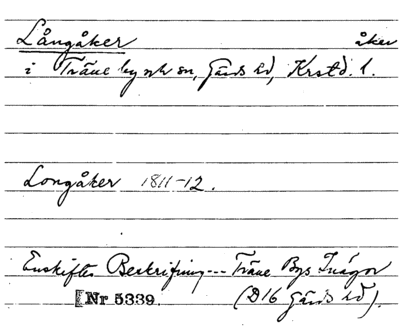 Långåker åker
i Träne by och sn, Gärds hd, Krstd. l.
Longåker 1811-12.
Enskiftes Beskrifning--- Träne Bys Inägor
Nr 5339. (D16 Gärds hd).